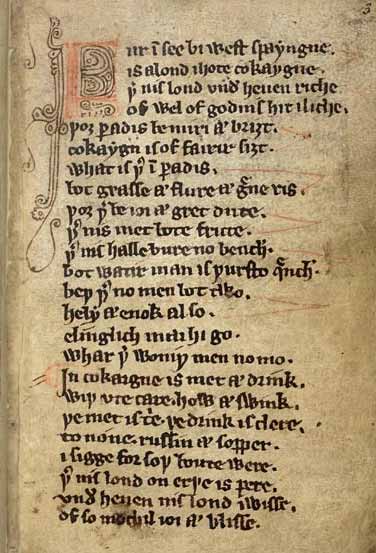 3
Fur ī see bi west spayngne.
is a lond ihote cokaygne.
þ' nis lond vnd' heuen riche
of wel of godnis hit iliche.
þoȝ ꝑadis be miri ⁊ briȝt.
cokaygn is of fairir siȝt
what is þ' ī ꝑadis.
bot grasse ⁊ flure ⁊ g'ne ris.
þoȝ þ' be ioi ⁊ gret dute.
þ' nis met bote frute.
þ' nis halle bure no bench.
bot watir man is þursto q'nch.
beþ þ' no men bot two.
hely ⁊ enok also.
elinglich mai hi go.
whar þ' woniþ men no mo.
In cokaigne is met ⁊ drink.
wiþ vte care. how ⁊ swink.
þe met is t'e. þe drink is clere.
to none. russin ⁊ sopper.
i sigge for soþ boute were.
þ' nis lond on erþe is pere.
vnd' heuen nis lond iwisse.
of so mochil ioi ⁊ blisse.